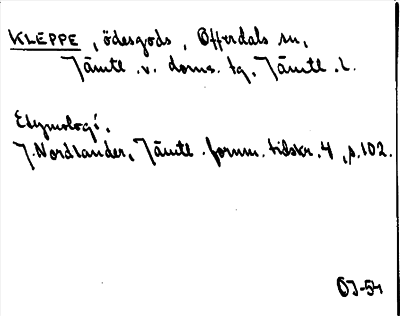 KLEPPE, ödesgods, Offerdals sn,
Jämtl. v. doms. tg, Jämtl. l.
Etymologi,
J. Nordlander, Jämtl. fornm. tidskr. 4, s. 102.
OJ-54